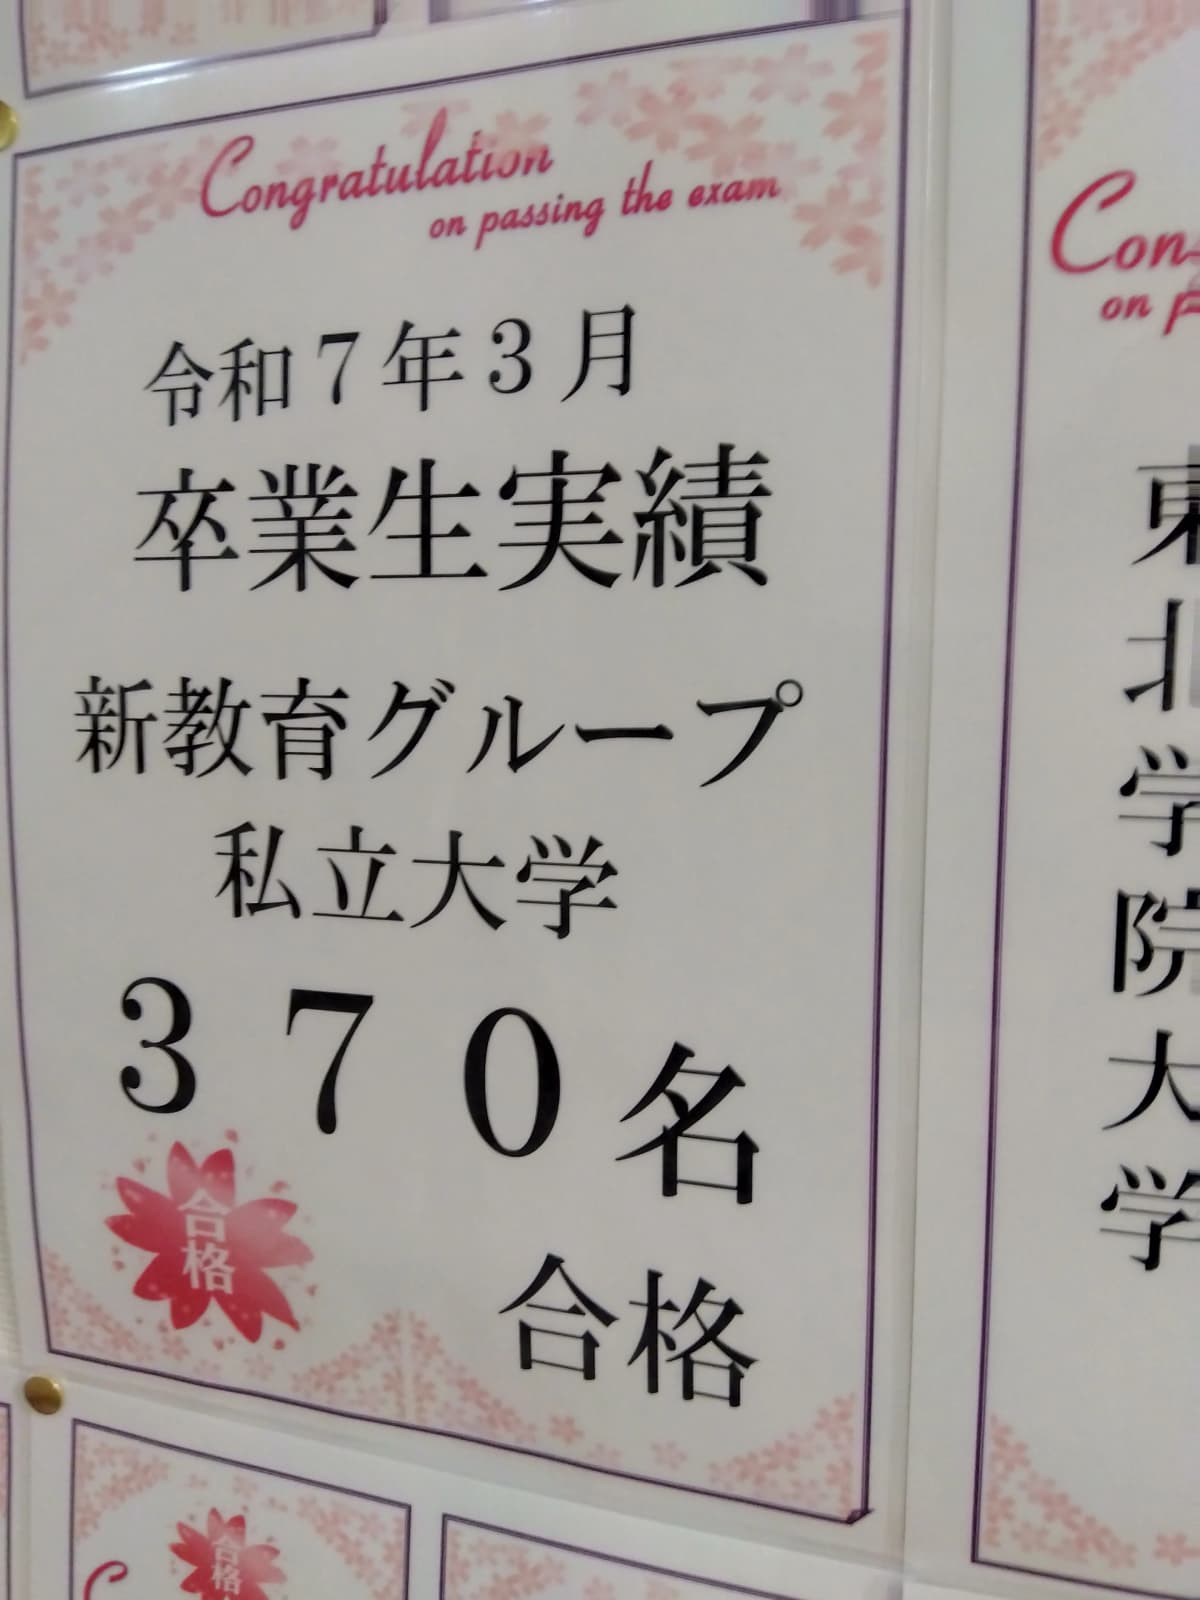 Congratulation
on passing the exam
令和７年３月
卒業生実績
新教育グループ
私立大学
３７０名
合格
合格
Con
on p
東北学院大学
合格
C